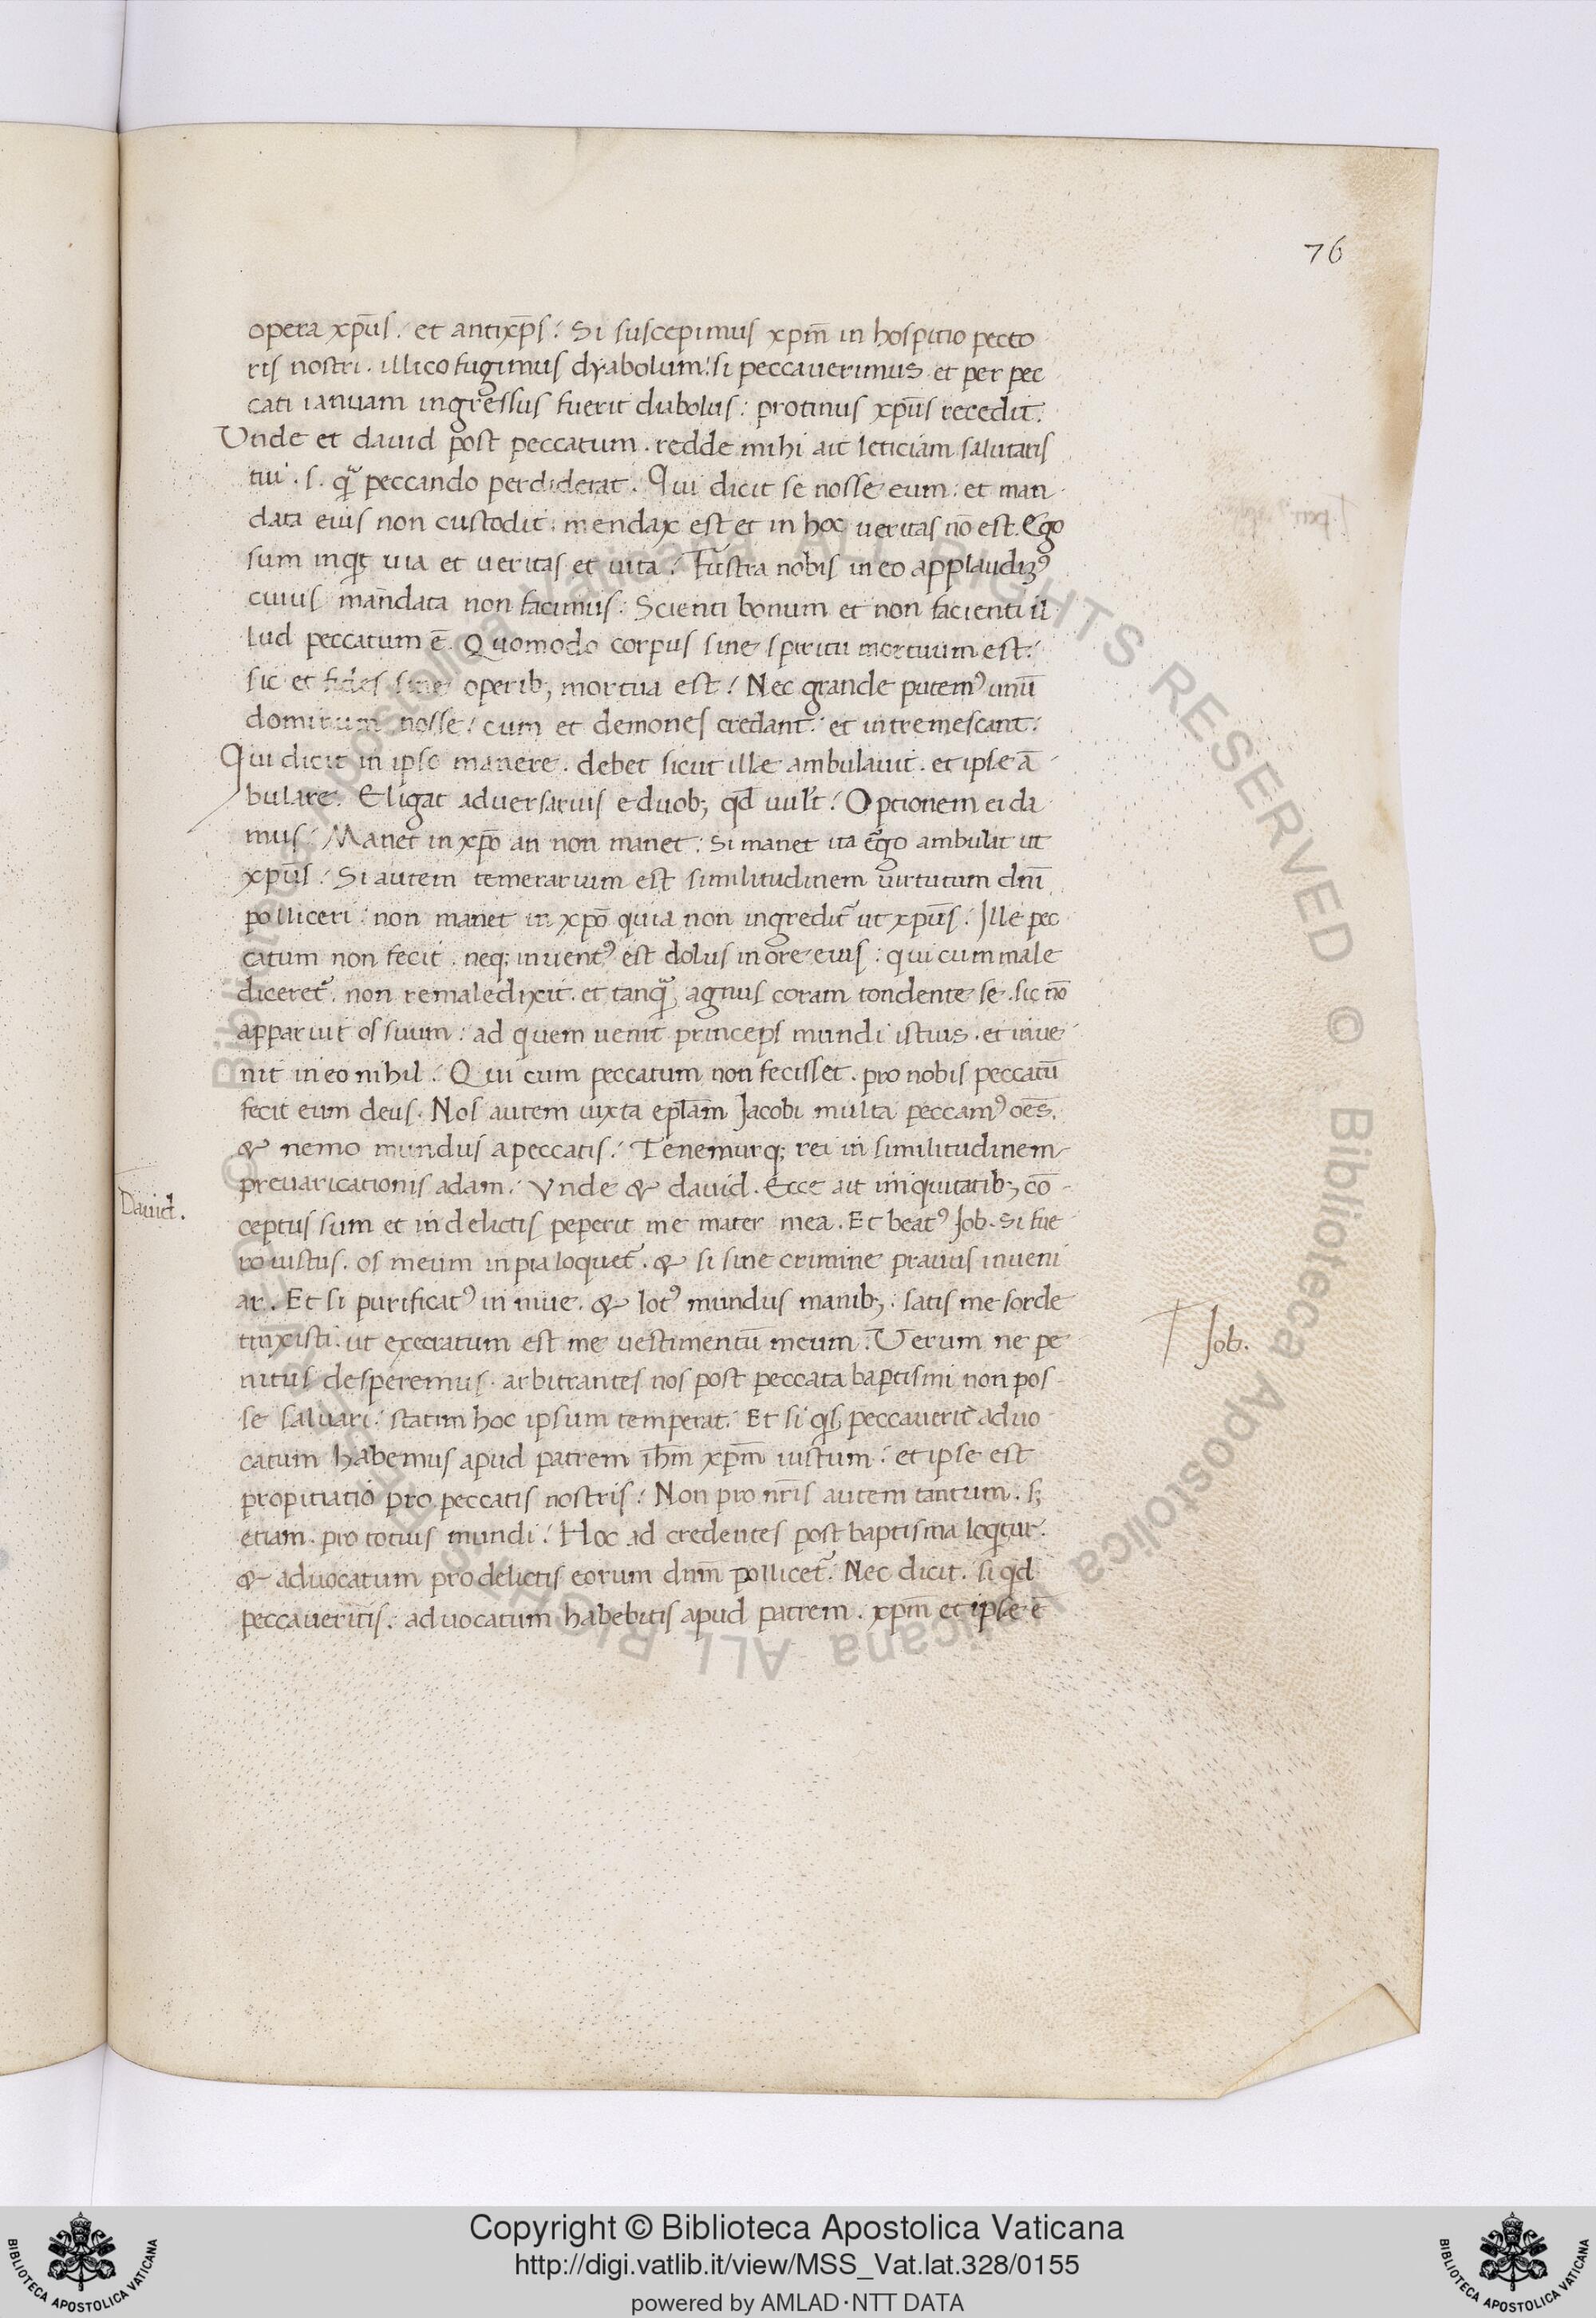 76
opera xp̄us. et antixp̄s. Si suscepimus xpm̄ in hospitio pecto
ris nostri. illico fugimus dyabolum. si peccauerimus et per pec
cati ianuam ingressus fuerit diabolus: protinus xp̄us recedit.
Vnde et dauid post peccatum. redde mihi ait leticiam salutaris
tui. s. qᷓ peccando perdiderat. Qui dicit se nosse eum: et man
data eius non custodit: mendax est et in hoc ueritas nō est. Ego
sum inqͥt uia et ueritas et uita. Frustra nobis in eo applaudimꝰ
cuius mandata non facimus. Scienti bonum et non facienti il
lud peccatum ē. Quomodo corpus sine spiritu mortuum est:
sic et fides sine operibꝫ mortua est. Nec grande putemꝰ unū
dominum nosse: cum et demones credant: et intremescant.
Qui dicit in ipso manere. debet sicut ille ambulauit. et ipse ā
bulare. Eligat aduersarius e duobꝫ qd̄ uult. Optionem ei da
mus. Manet in xpō an non manet. Si manet ita ergo ambulat ut
xp̄us. Si autem temerarium est similitudinem uirtutum dn̄i
polliceri: non manet in xpō quia non ingredit᷑ ut xp̄us. Ille pec
catum non fecit. neqꝫ inuentꝰ est dolus in ore eius: qui cum male
diceret᷑. non remaledixit. et tanqᷓ agnus coram tondente se. sic nō
apparuit os suum: ad quem uenit princeps mundi istius. et inue
nit in eo nihil. Qui cum peccatum non fecisset. pro nobis peccatū
fecit eum deus. Nos autem iuxta eplām Jacobi multa peccamꝰ oēs.
& nemo mundus a peccatis. Tenemurqꝫ rei in similitudinem
preuaricationis adam. Vnde & dauid. Ecce ait iniquitatibꝫ cō
Dauid.
ceptus sum et in delictis peperit me mater mea. Et beatꝰ Job. Si fue
ro iustus. os meum inpia loquet᷑. & si sine crimine prauus inueni
ar. Et si purificatꝰ in niue. & lotꝰ mundus manibꝫ. satis me sorde
tinxisti. ut execratum est me uestimentū meum. Verum ne pe
Job.
nitus desperemus. arbitrantes nos post peccata baptismi non pos
se saluari: statim hoc ipsum temperat. Et si qͥs peccauerit aduo
catum habemus apud patrem ihm̄ xpm̄ iustum: et ipse est
propitiatio pro peccatis nostris. Non pro nr̄is autem tantum. sꝫ
etiam pro totius mundi. Hoc ad credentes post baptisma loqͥtur.
& aduocatum pro delictis eorum dnm̄ pollicet᷑. Nec dicit. si qͥd
peccaueritis. aduocatum habebitis apud patrem. xpm̄ et ipse ē
Copyright © Biblioteca Apostolica Vaticana
http://digi.vatlib.it/view/MSS_Vat.lat.328/0155
powered by AMLAD·NTT DATA